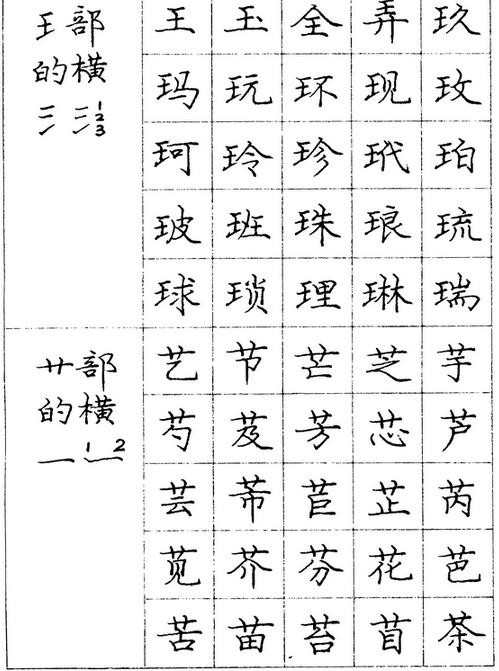 王部
的横
三 三 1 2 3
王 玉 全 弄 玖
玛 玩 环 现 玫
珂 玲 珍 玳 珀
玻 班 珠 琅 琉
球 琐 理 琳 瑞
艹部
的横
一 1 一 2
艺 节 芒 芝 芋
芍 芨 芳 芯 芦
芸 芾 苣 芷 芮
苋 芥 芬 花 芭
苦 苗 苔 苜 茶